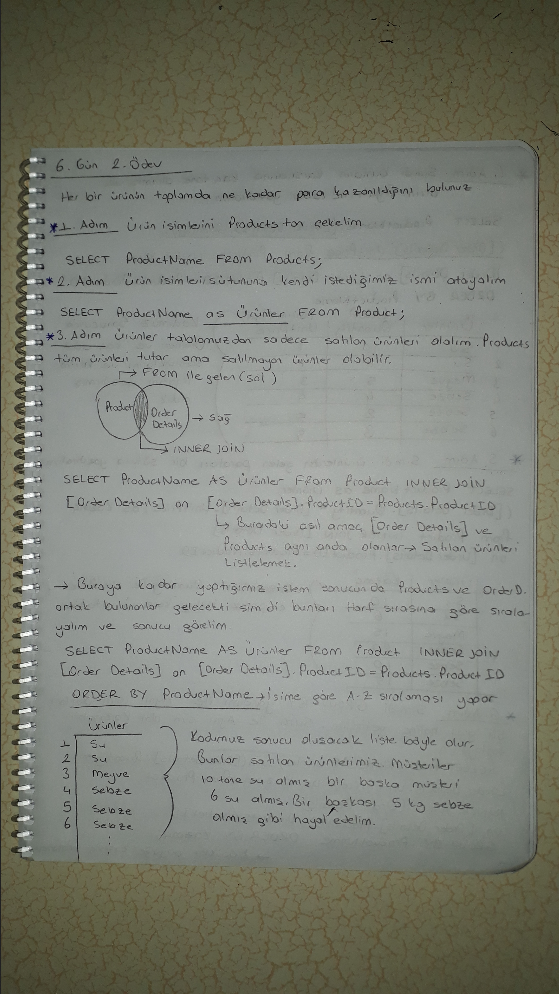 6. Gün 2. Ödev
Her bir ürünün toplamda ne kadar para kazanıldığını bulunuz
* 1. Adım Ürün isimlerini Products tan çekelim
SELECT ProductName FROM Products;
* 2. Adım Ürün isimleri sütununa kendi istediğimiz ismi atayalım
SELECT ProductName as Ürünler FROM Product;
* 3. Adım Ürünler tablomuzdan sadece satılan ürünleri alalım. Products
tüm ürünleri tutar ama satılmayan ürünler olabilir.
→ FROM ile gelen (sol)
Product
Order Details → sağ
→ INNER JOIN
*
SELECT ProductName AS Ürünler From Product INNER JOIN
[Order Details] on [Order Details].ProductID = Products.ProductID
↳ Buradaki asıl amaç [Order Details] ve
Products aynı anda olanlar → Satılan ürünleri
Listelemek.
→ Buraya kadar yaptığımız işlem sonucunda Products ve OrderD.
ortak bulunanlar gelecekti şimdi bunları Harf sırasına göre sırala
yalım ve sonucu görelim
SELECT ProductName AS Ürünler From Product INNER JOIN
[Order Details] on [Order Details].ProductID = Products.ProductID
ORDER BY ProductName → isime göre A-Z sıralaması yapar
Ürünler
1 Su
2 Su
3 Meyve
4 Sebze
5 Sebze
6 Sebze
Kodumuz sonucu oluşacak liste böyle olur.
Bunlar satılan ürünlerimiz. Müşteriler
10 tane su almış bir başka müşteri
6 su almış. Bir başkası 5 kg sebze
almış gibi hayal edelim.